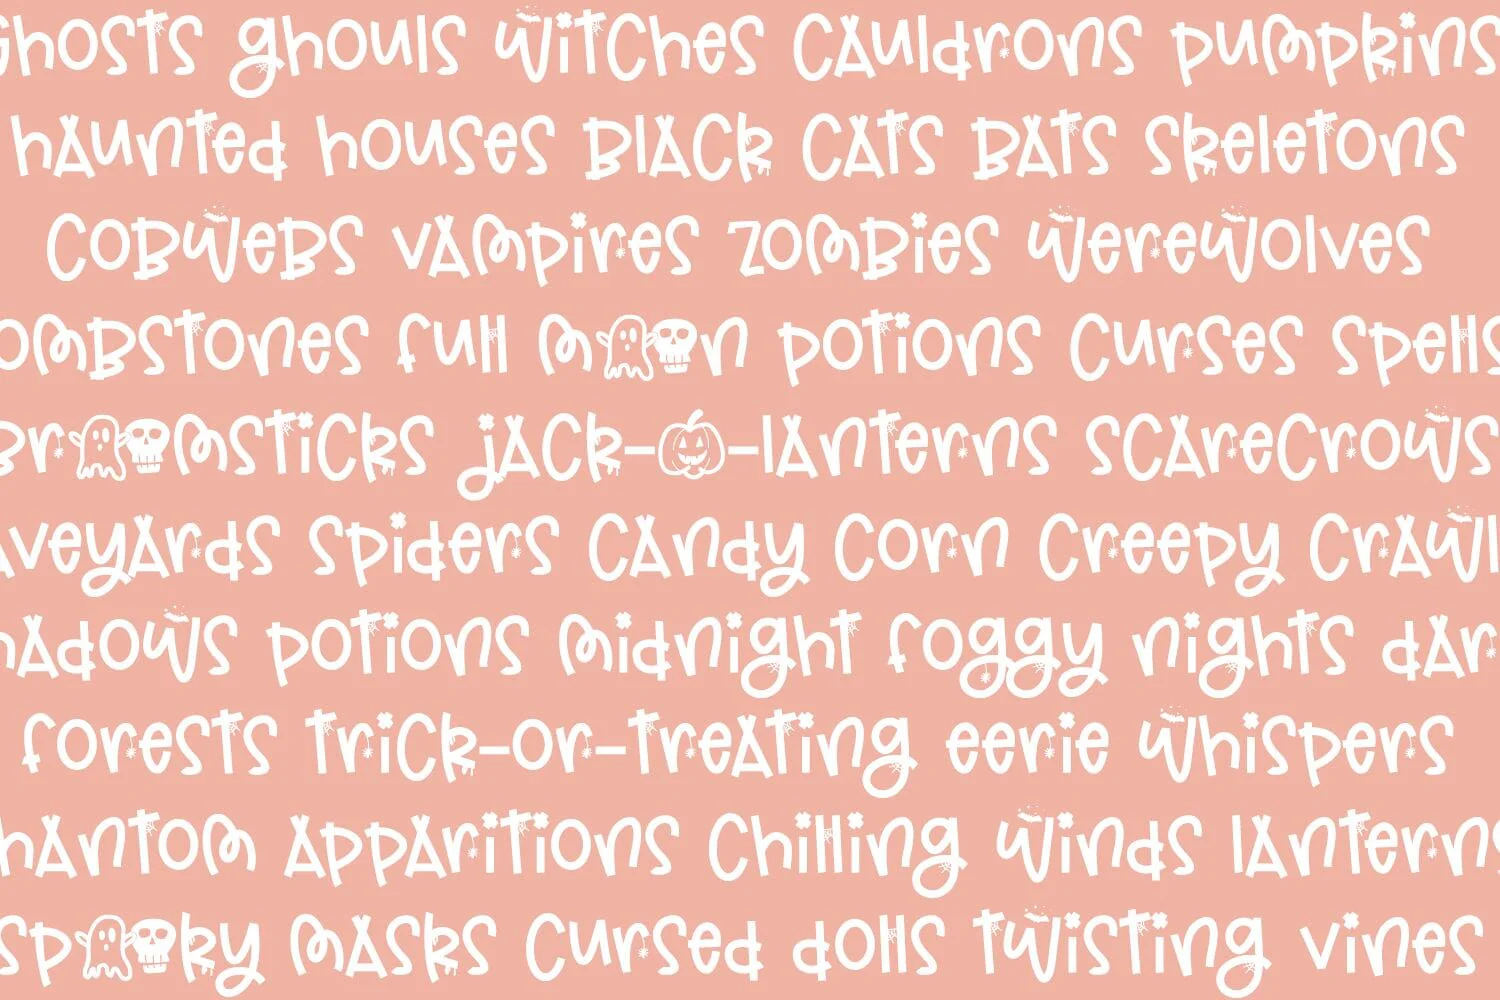 Ghosts ghouls witches cauldrons pumpkins
haunted houses black cats bats skeletons
cobwebs vampires zombies werewolves
ombstones full moon potions curses spells
broomsticks jack-o-lanterns scarecrows
aveyards spiders candy corn creepy crawl
hadows potions midnight foggy nights dar
forests trick-or-treating eerie whispers
hantom apparitions chilling winds lanterns
spooky masks cursed dolls twisting vines